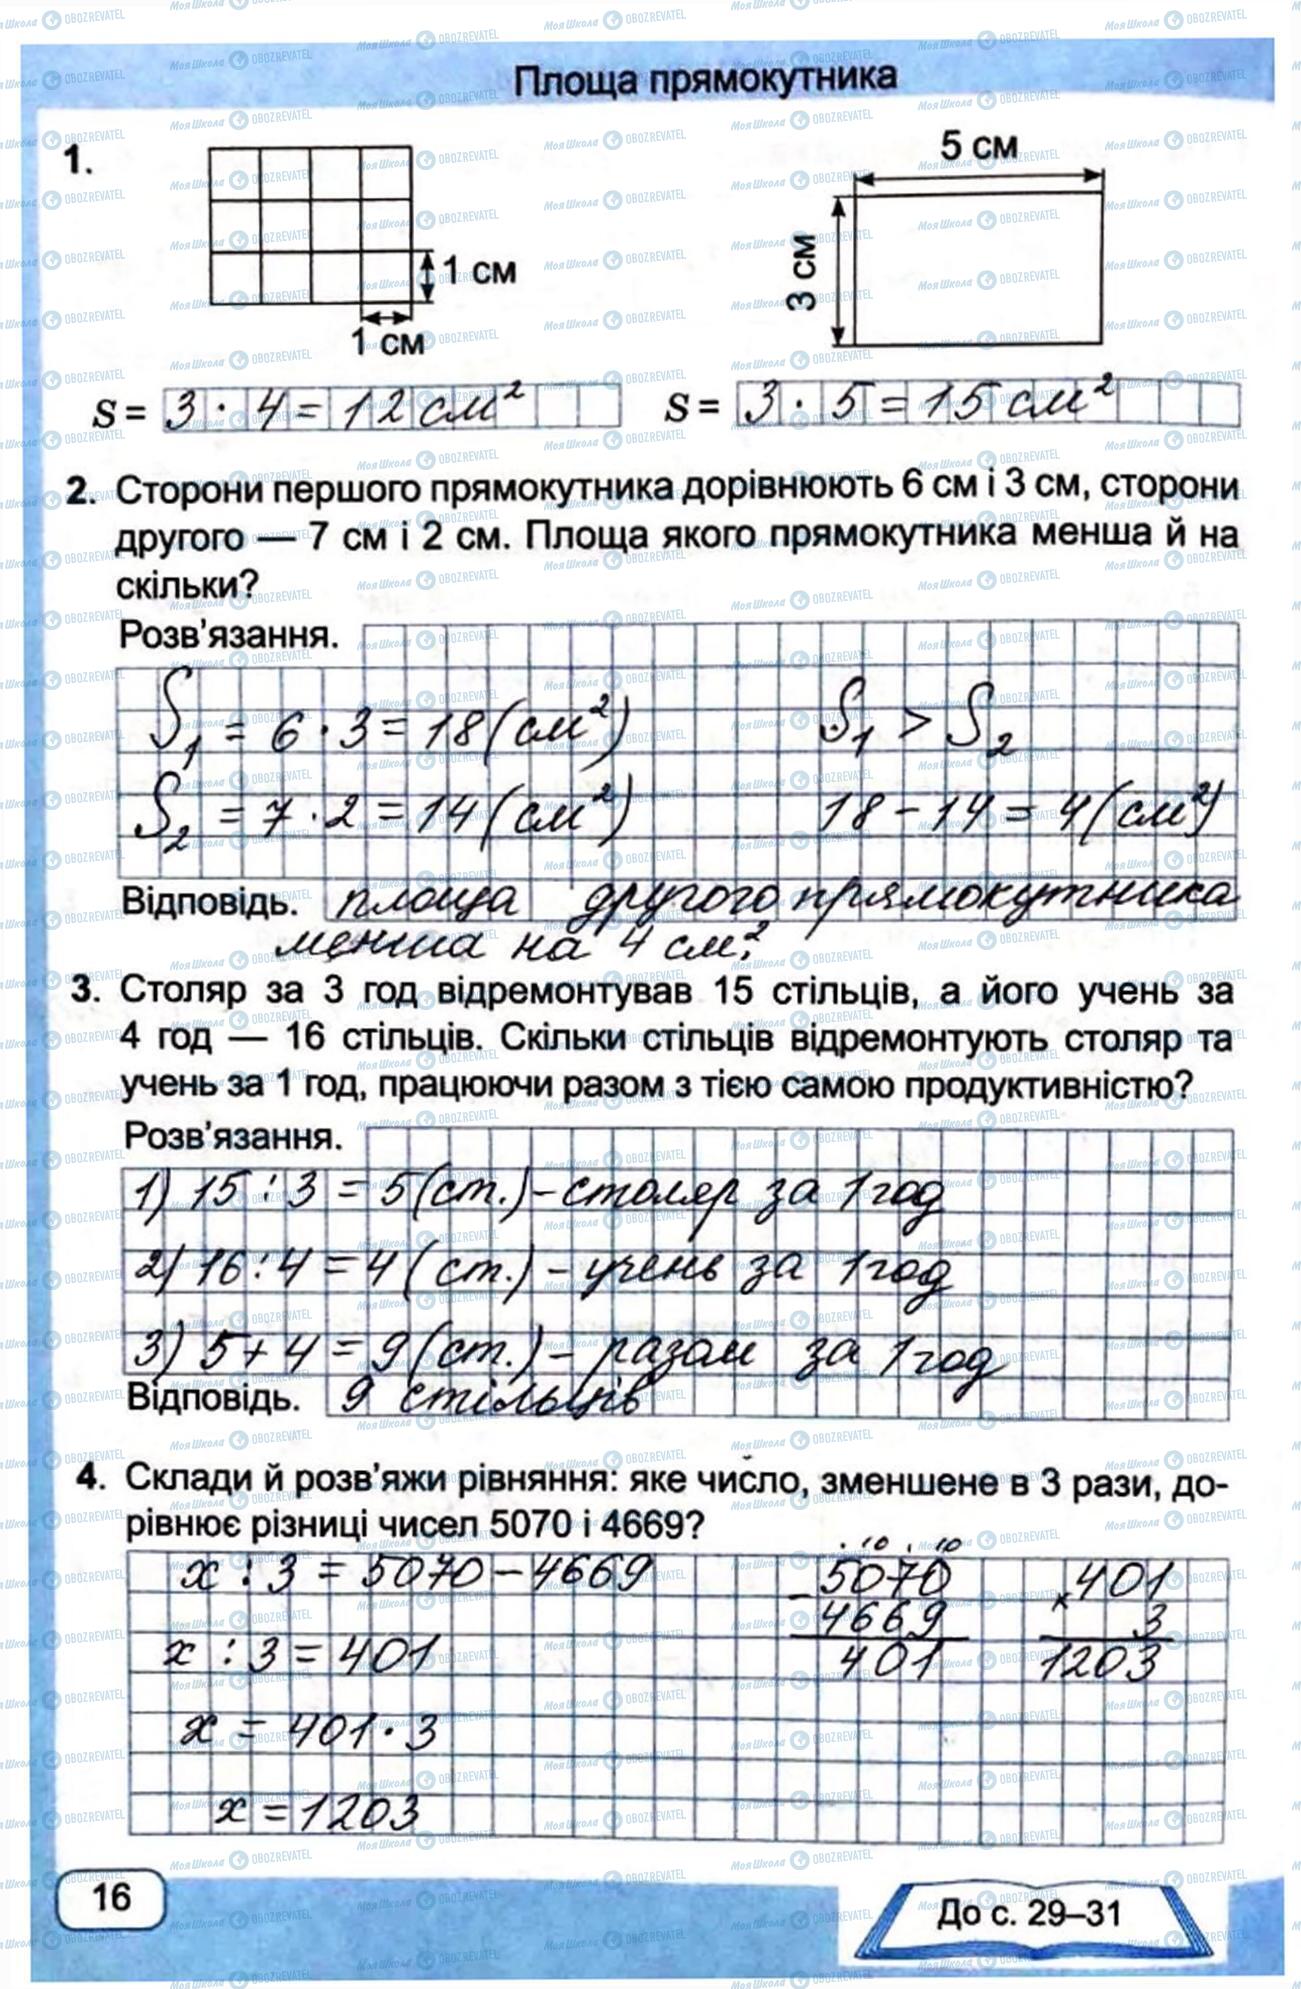 Площа прямокутника
1.
5 см
3 см
1 см
1 см
S = 3 · 4 = 12 см²
S = 3 · 5 = 15 см²
2. Сторони першого прямокутника дорівнюють 6 см і 3 см, сторони
другого — 7 см і 2 см. Площа якого прямокутника менша й на
скільки?
Розв'язання.
S₁ = 6 · 3 = 18 (см²) S₁ > S₂
S₂ = 7 · 2 = 14 (см²) 18 − 14 = 4 (см²)
Відповідь. площа другого прямокутника
менша на 4 см².
3. Столяр за 3 год відремонтував 15 стільців, а його учень за
4 год — 16 стільців. Скільки стільців відремонтують столяр та
учень за 1 год, працюючи разом з тією самою продуктивністю?
Розв'язання.
1) 15 : 3 = 5 (ст.) – столяр за 1 год
2) 16 : 4 = 4 (ст.) – учень за 1 год
3) 5 + 4 = 9 (ст.) – разом за 1 год
Відповідь. 9 стільців
4. Склади й розв'яжи рівняння: яке число, зменшене в 3 рази, до-
рівнює різниці чисел 5070 і 4669?
. 10 . 10
x : 3 = 5070 − 4669 − 5070 × 401
4669 3
x : 3 = 401 401 1203
x = 401 · 3
x = 1203
16
До с. 29–31
Моя Школа OBOZREVATEL